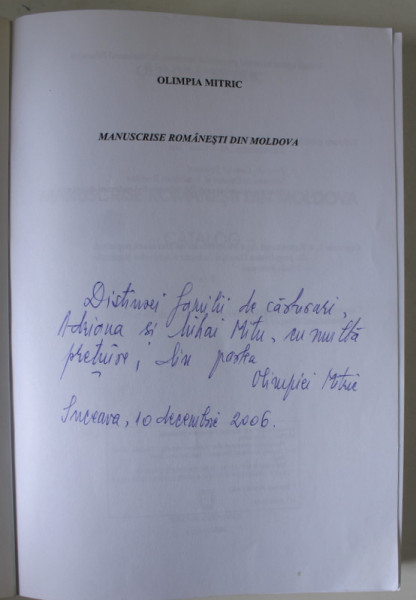 OLIMPIA MITRIC
MANUSCRISE ROMÂNEŞTI DIN MOLDOVA
Distinsei familii de cărturari,
Adriana si Mihai Mitu, cu multă
preţuire, din partea
Olimpiei Mitric
Suceava, 10 decembrie 2006.